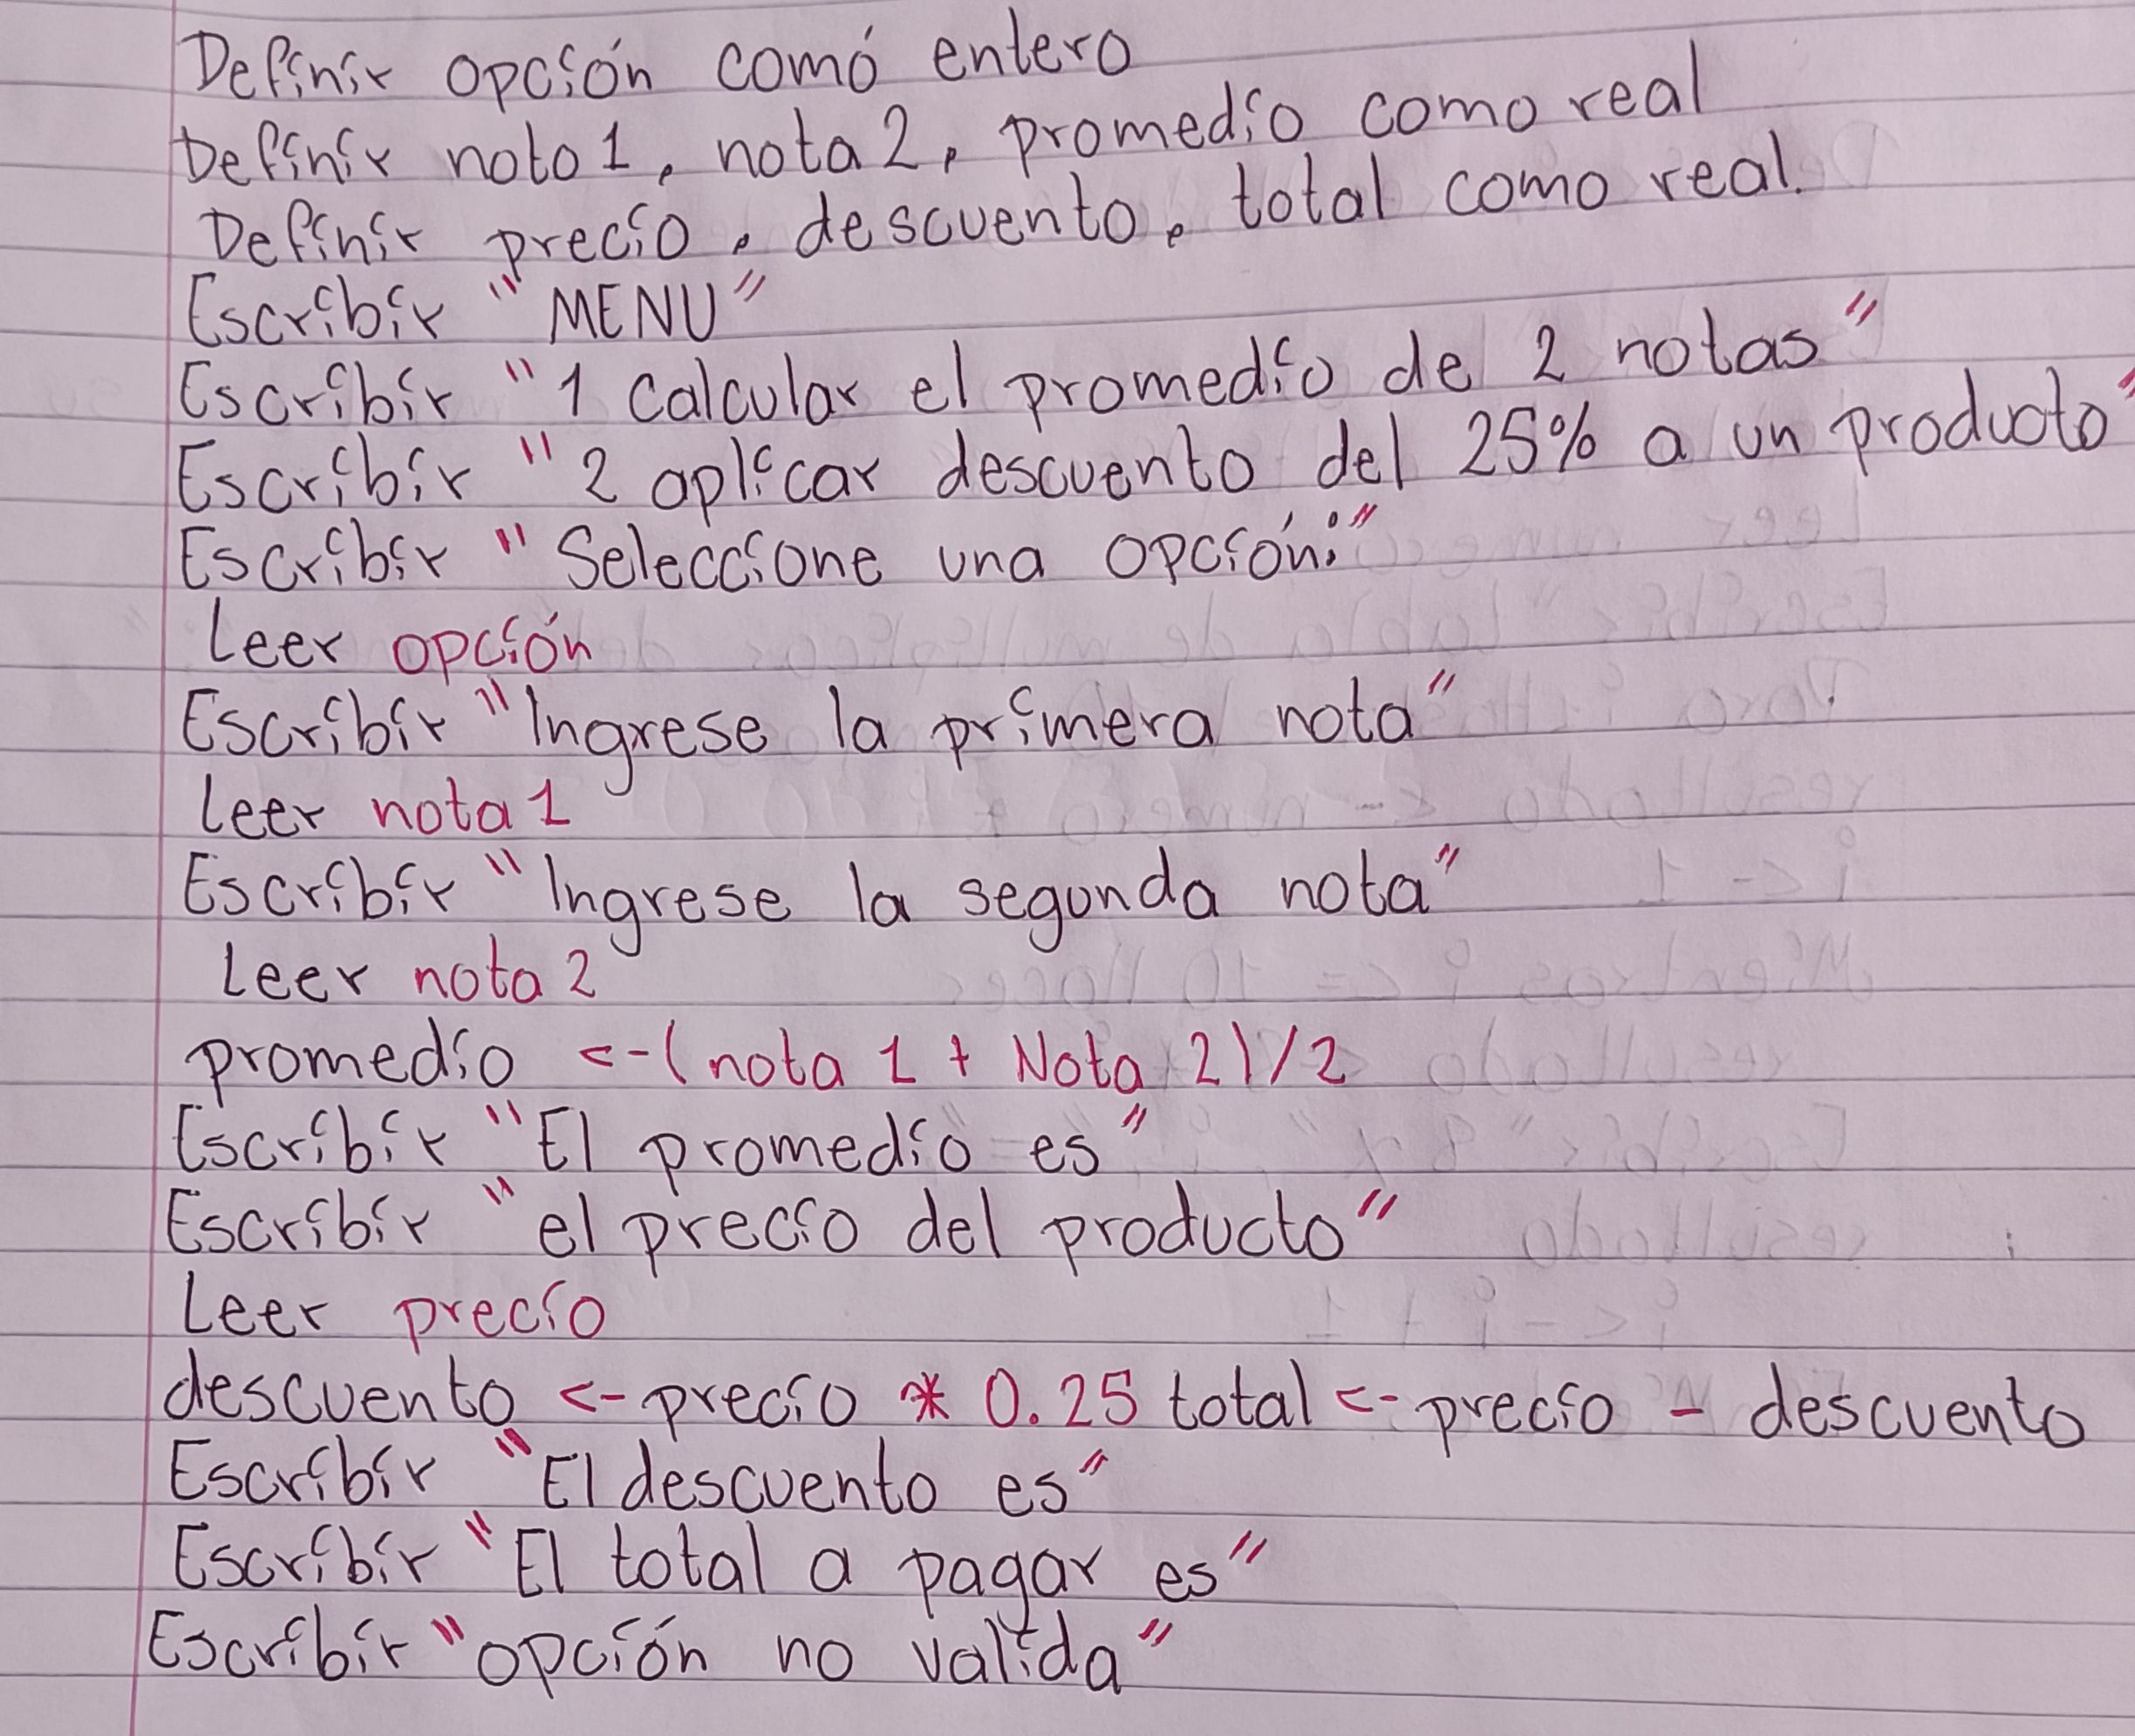 Definir opción comó entero
Definir noto1, nota2, promedio como real
Definir precio, descuento, total como real.
Escribir "MENU"
Escribir "1 Calcular el promedio de 2 notas"
Escribir "2 aplicar descuento del 25% a un producto"
Escribir "Seleccione una opción:"
Leer opción
Escribir "Ingrese la primera nota"
Leer nota1
Escribir "Ingrese la segunda nota"
Leer nota2
promedio <-(nota 1 + Nota 2)/2
Escribir "El promedio es"
Escribir "el precio del producto"
Leer precio
descuento <- precio * 0.25 total <- precio - descuento
Escribir "El descuento es"
Escribir "El total a pagar es"
Escribir "opción no valida"